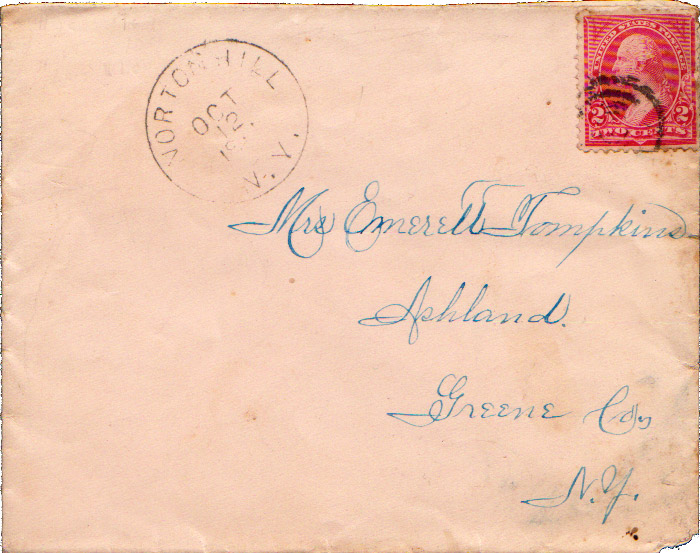 NORTON HILL
N.Y.
OCT
12
UNITED STATES POSTAGE
2 2
TWO CENTS
Mrs Emerett Tompkins
Ashland.
Greene Co,
N.Y.